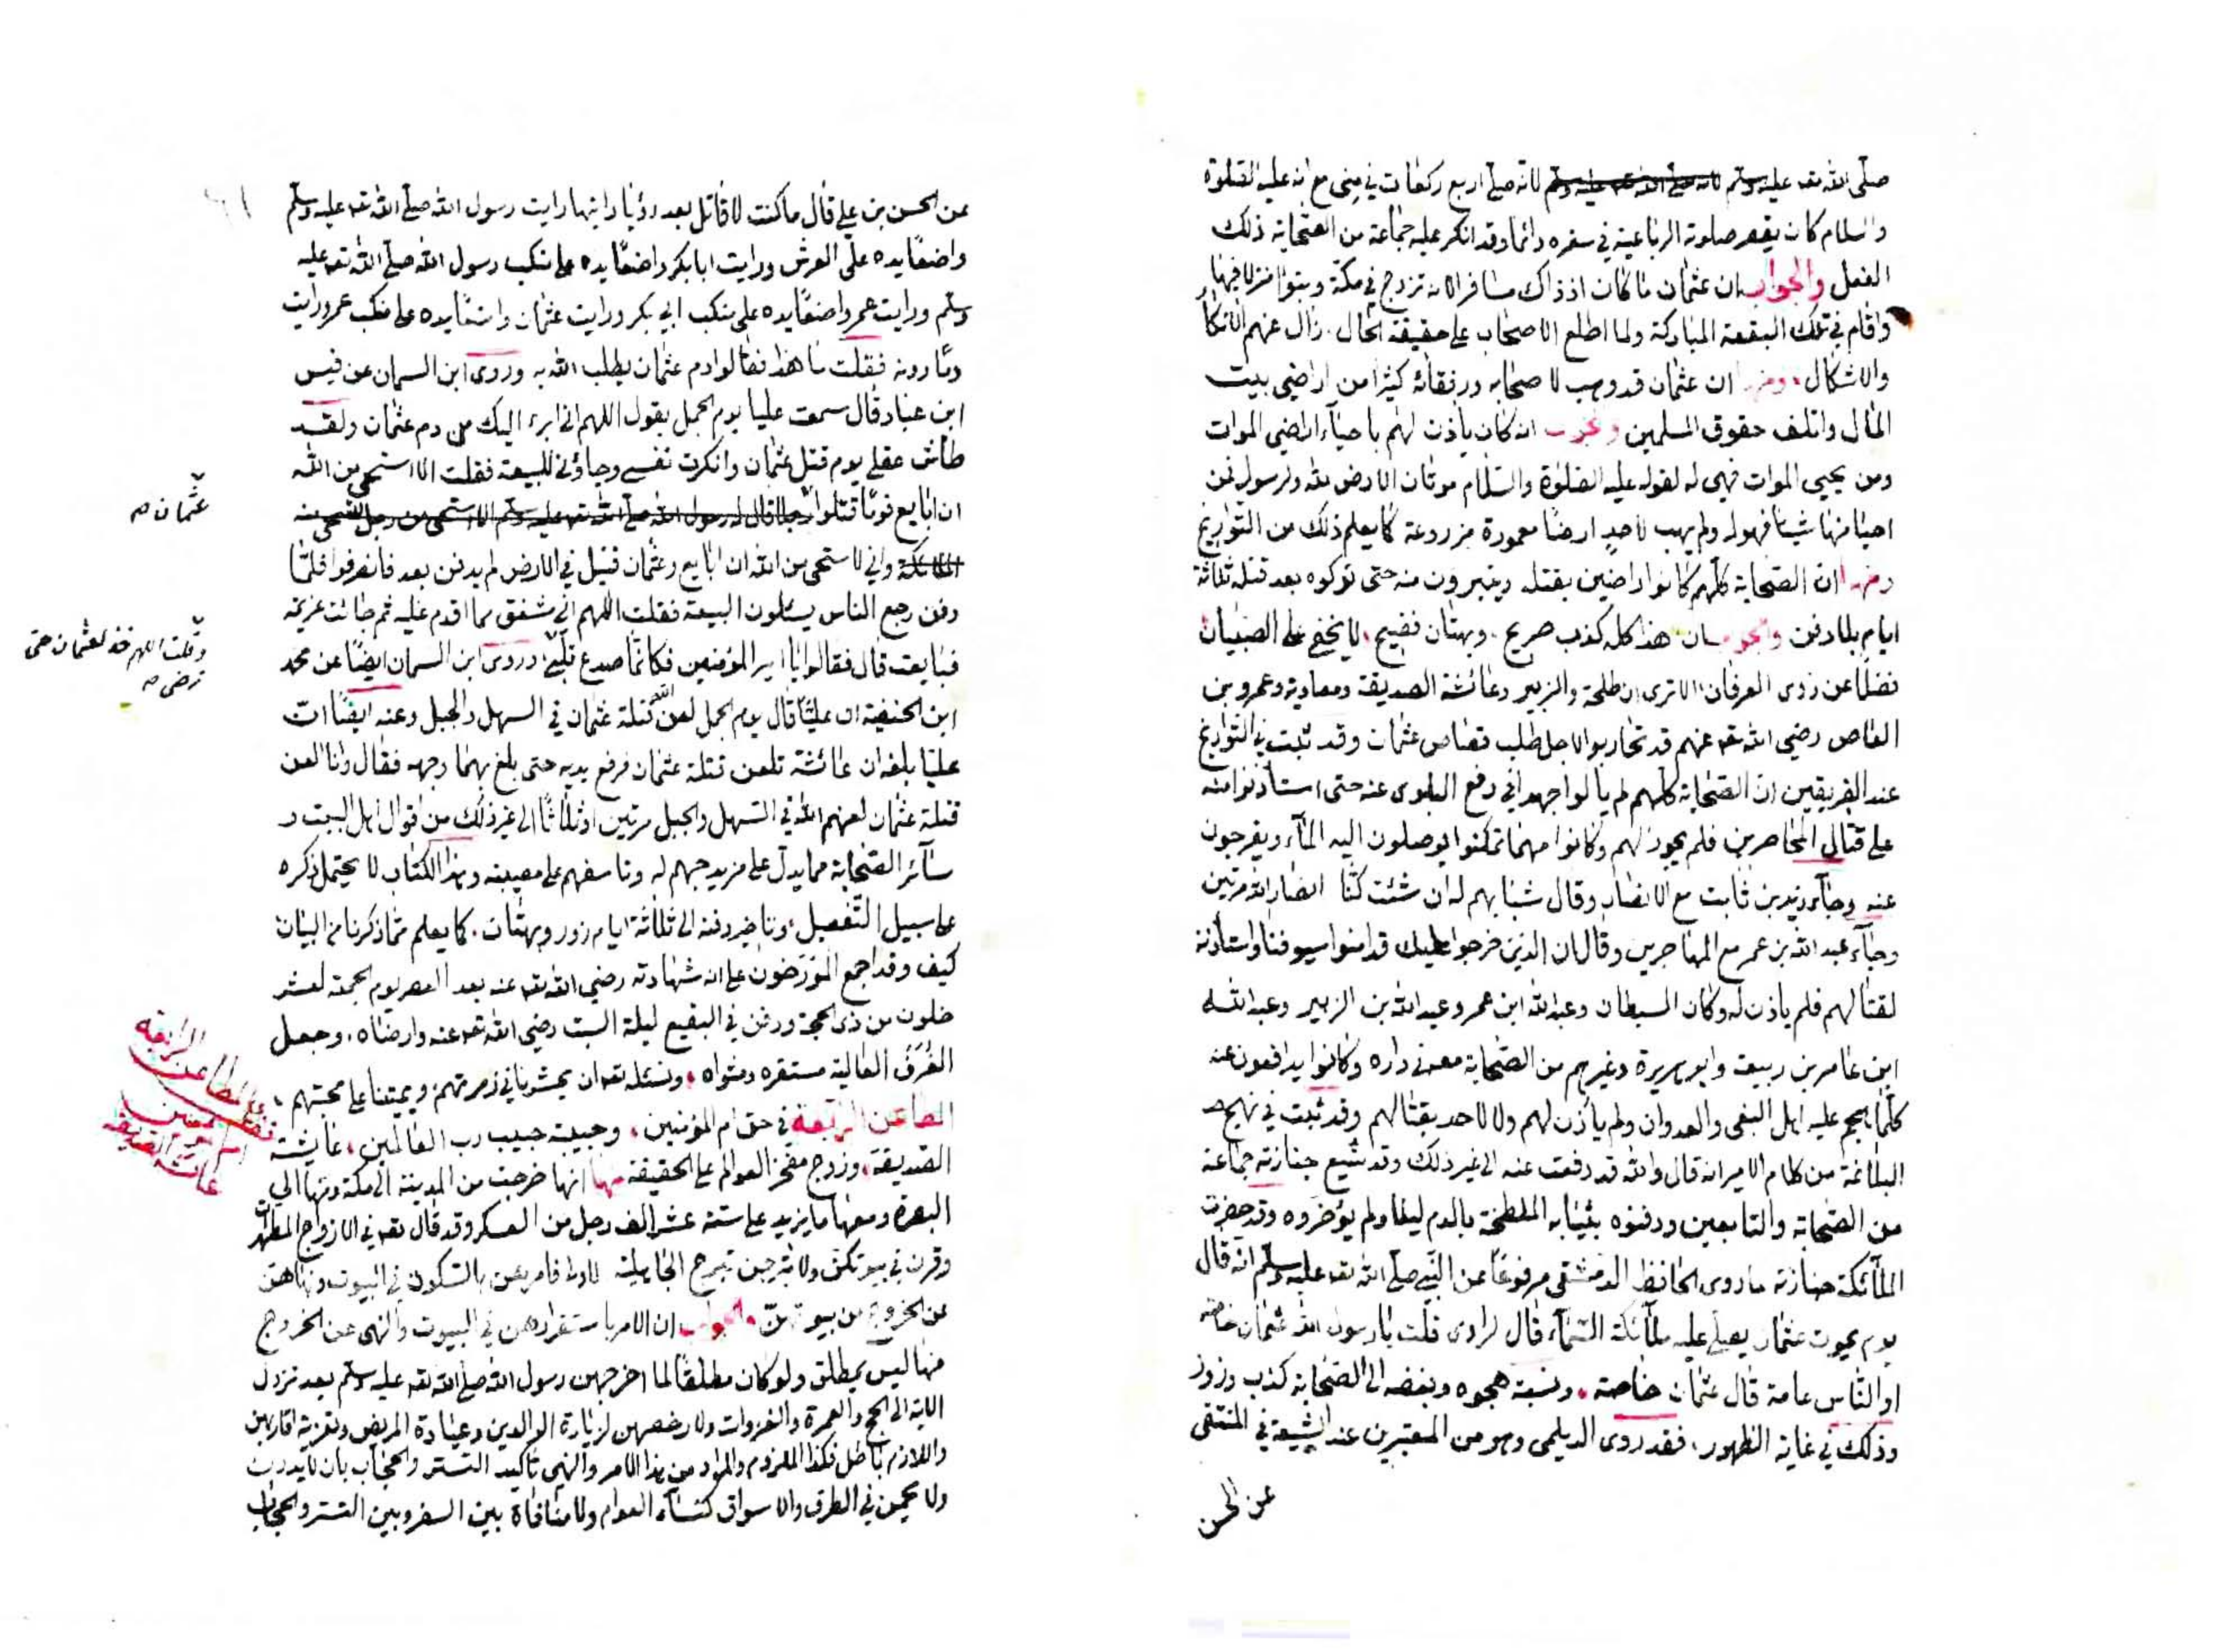 صلى الله تعه عليه وسلم لانه صلى الله تعه عليه وسلم لانه صلى اربع ركعات في منى مع انه عليه الصلوة
والسلام كان يقصر صلوته الرباعية في سفره دائما وقد انكر عليه جماعة من الصحابة ذلك
الفعل والجواب ان عثمان ما كان اذ ذاك مسافرا لانه تزوج في مكة وتبوأ منزلا فيها
واقام في تلك البقعة المباركة ولما اطلع الاصحاب على حقيقة الحال زال عنهم الانكار
والاشكال ومنها ان عثمان قد وهب لاصحابه ورفقائه كثيرا من اراضي بيت
المال واتلف حقوق المسلمين والجواب انه كان يأذن لهم باحياء اراضي الموات
ومن يحيي الموات فهي له لقوله عليه الصلوة والسلام موتان الارض لله ولرسوله فمن
احيا منها شيئا فهو له ولم يهب لاحد ارضا معمورة مزروعة كما يعلم ذلك من التواريخ
ومنها ان الصحابة كلهم كانوا راضين بقتله ويتبرون منه حتى تركوه بعد قتله ثلاثة
ايام بلا دفن والجواب ان هذا كله كذب صريح وبهتان فضيح لا يخفى على الصبيان
فضلا عن ذوى العرفان الا ترى ان طلحة والزبير وعائشة الصديقة ومعاوية وعمرو بن
العاص رضي الله تعه عنهم قد تحاربوا لاجل طلب قصاص عثمان وقد ثبت في التواريخ
عند الفريقين ان الصحابة كلهم لم يألوا جهدا في دفع البلوى عنه حتى استأذنوا منه
على قتال المحاصرين فلم يجوز لهم وكانوا مهما تمكنوا يوصلون اليه الماء ويفرجون
عنه وجاء زيد بن ثابت مع الانصار وقال شبابهم له ان شئت كنا انصار الله مرتين
وجاء عبد الله بن عمر مع المهاجرين وقال ان الذين خرجوا عليك قد امنوا سيوفنا واستأذنه
لقتالهم فلم يأذن له وكان السبطان وعبد الله ابن عمر وعبد الله بن الزبير وعبد الله
ابن عامر بن ربيعة وابو هريرة وغيرهم من الصحابة معه في داره وكانوا يدافعون عنه
كلما هجم عليه اهل البغى والعدوان ولم يأذن لهم ولا لاحد بقتالهم وقد ثبت في نهج
البلاغة من كلام الامير انه قال والله قد دفعت عنه الى غير ذلك وقد شيع جنازته جماعة
من الصحابة والتابعين ودفنوه بثيابه الملطخة بالدم ليلا ولم يؤخروه وقد حضرت
الملائكة جنازته ما روى الحافظ الدمشقي مرفوعا عن النبي صلى الله تعه عليه وسلم انه قال
يوم يموت عثمان يصلى عليه ملائكة السماء قال الراوى قلت يا رسول الله عثمان خاصة
او الناس عامة قال عثمان خاصة ونسبة هجوه وبغضه الى الصحابة كذب وزور
وذلك في غاية الظهور فقد روى الديلمى وهو من المعتبرين عند الشيعة في المنتقى
عن الحسن
عن الحسن بن علي قال ما كنت لاقاتل بعد رؤيا رايتها رايت رسول الله صلى الله تعه عليه وسلم
واضعا يده على العرش ورايت ابا بكر واضعا يده على منكب رسول الله صلى الله تعه عليه
وسلم ورايت عمر واضعا يده على منكب ابي بكر ورايت عثمان واضعا يده على منكب عمر ورايت
دما دونه فقلت ما هذا فقالوا دم عثمان يطلب الله به وروى ابن السمان عن قيس
ابن عباد قال سمعت عليا يوم الجمل يقول اللهم انى ابرء اليك من دم عثمان ولقد
طاش عقلي يوم قتل عثمان وانكرت نفسي وجاؤني للبيعة فقلت الا استحى من الله
ان ابايع قوما قتلوا رجلا قال له رسول الله صلى الله تعه عليه وسلم الا استحى من رجل تستحى منه
عثمان صح
الملائكة واني لاستحى من الله ان ابايع وعثمان قتيل في الارض لم يدفن بعد فانصرفوا فلما
دفن رجع الناس يسئلون البيعة فقلت اللهم اني مشفق مما اقدم عليه ثم جائت عزيمة
فبايعت قال فقالوا يا امير المؤمنين فكأنما صدع قلبي وروى ابن السمان ايضا عن محمد
وقلت اللهم خذ لعثمان حتى
ترضى صح
ابن الحنفية ان عليا قال يوم الجمل لعن الله قتلة عثمان في السهل والجبل وعنه ايضا ان
عليا بلغه ان عائشة تلعن قتلة عثمان فرفع يديه حتى بلغ بهما وجهه فقال وانا العن
قتلة عثمان لعنهم الله في السهل والجبل مرتين او ثلاثا الى غير ذلك من اقوال اهل البيت و
سائر الصحابة مما يدل على مزيد حبهم له وتاسفهم على مصيبته وهذا الكتاب لا يحتمل ذكره
على سبيل التفصيل وتاخير دفنه الى ثلاثة ايام زور وبهتان كما يعلم مما ذكرنا من البيان
كيف وقد اجمع المؤرخون على ان شهادته رضي الله تعه عنه بعد العصر يوم الجمعة لعشر
خلون من ذى الحجة ودفن في البقيع ليلة السبت رضي الله تعه عنه وارضاه وجعل
الغرف العالية مستقره ومثواه ونسئله تعه ان يحشرنا في زمرتهم ويميتنا على محبتهم
المطاعن الرابعة في حق ام المؤمنين وحبيبة حبيب رب العالمين عايشة
المطاعن الرابعة
عائشة الصديقة
الصديقة وزوج مفخر العوالم على الحقيقة منها انها خرجت من المدينة الى مكة ومنها الى
البصرة ومعها ما يزيد على ستة عشر الف رجل من العسكر وقد قال تعه في الازواج المطهرات
وقرن في بيوتكن ولا تبرجن تبرج الجاهلية الاولى فامرهن بالسكون في البيوت ونهاهن
عن الخروج من بيوتهن والجواب ان الامر باستقرارهن في البيوت والنهى عن الخروج
منها ليس بمطلق ولو كان مطلقا لما اخرجهن رسول الله صلى الله تعه عليه وسلم بعد نزول
الاية الى الحج والعمرة والغزوات ولا رخصهن لزيارة الوالدين وعيادة المريض وتعزية اقاربهن
واللازم باطل فكذا الملزوم والمراد من هذا الامر والنهى تاكيد التستر والحجاب بان لا يدرن
ولا يجمن في الطرق والاسواق كنساء العوام ولا منافاة بين السفر وبين التستر والحجاب